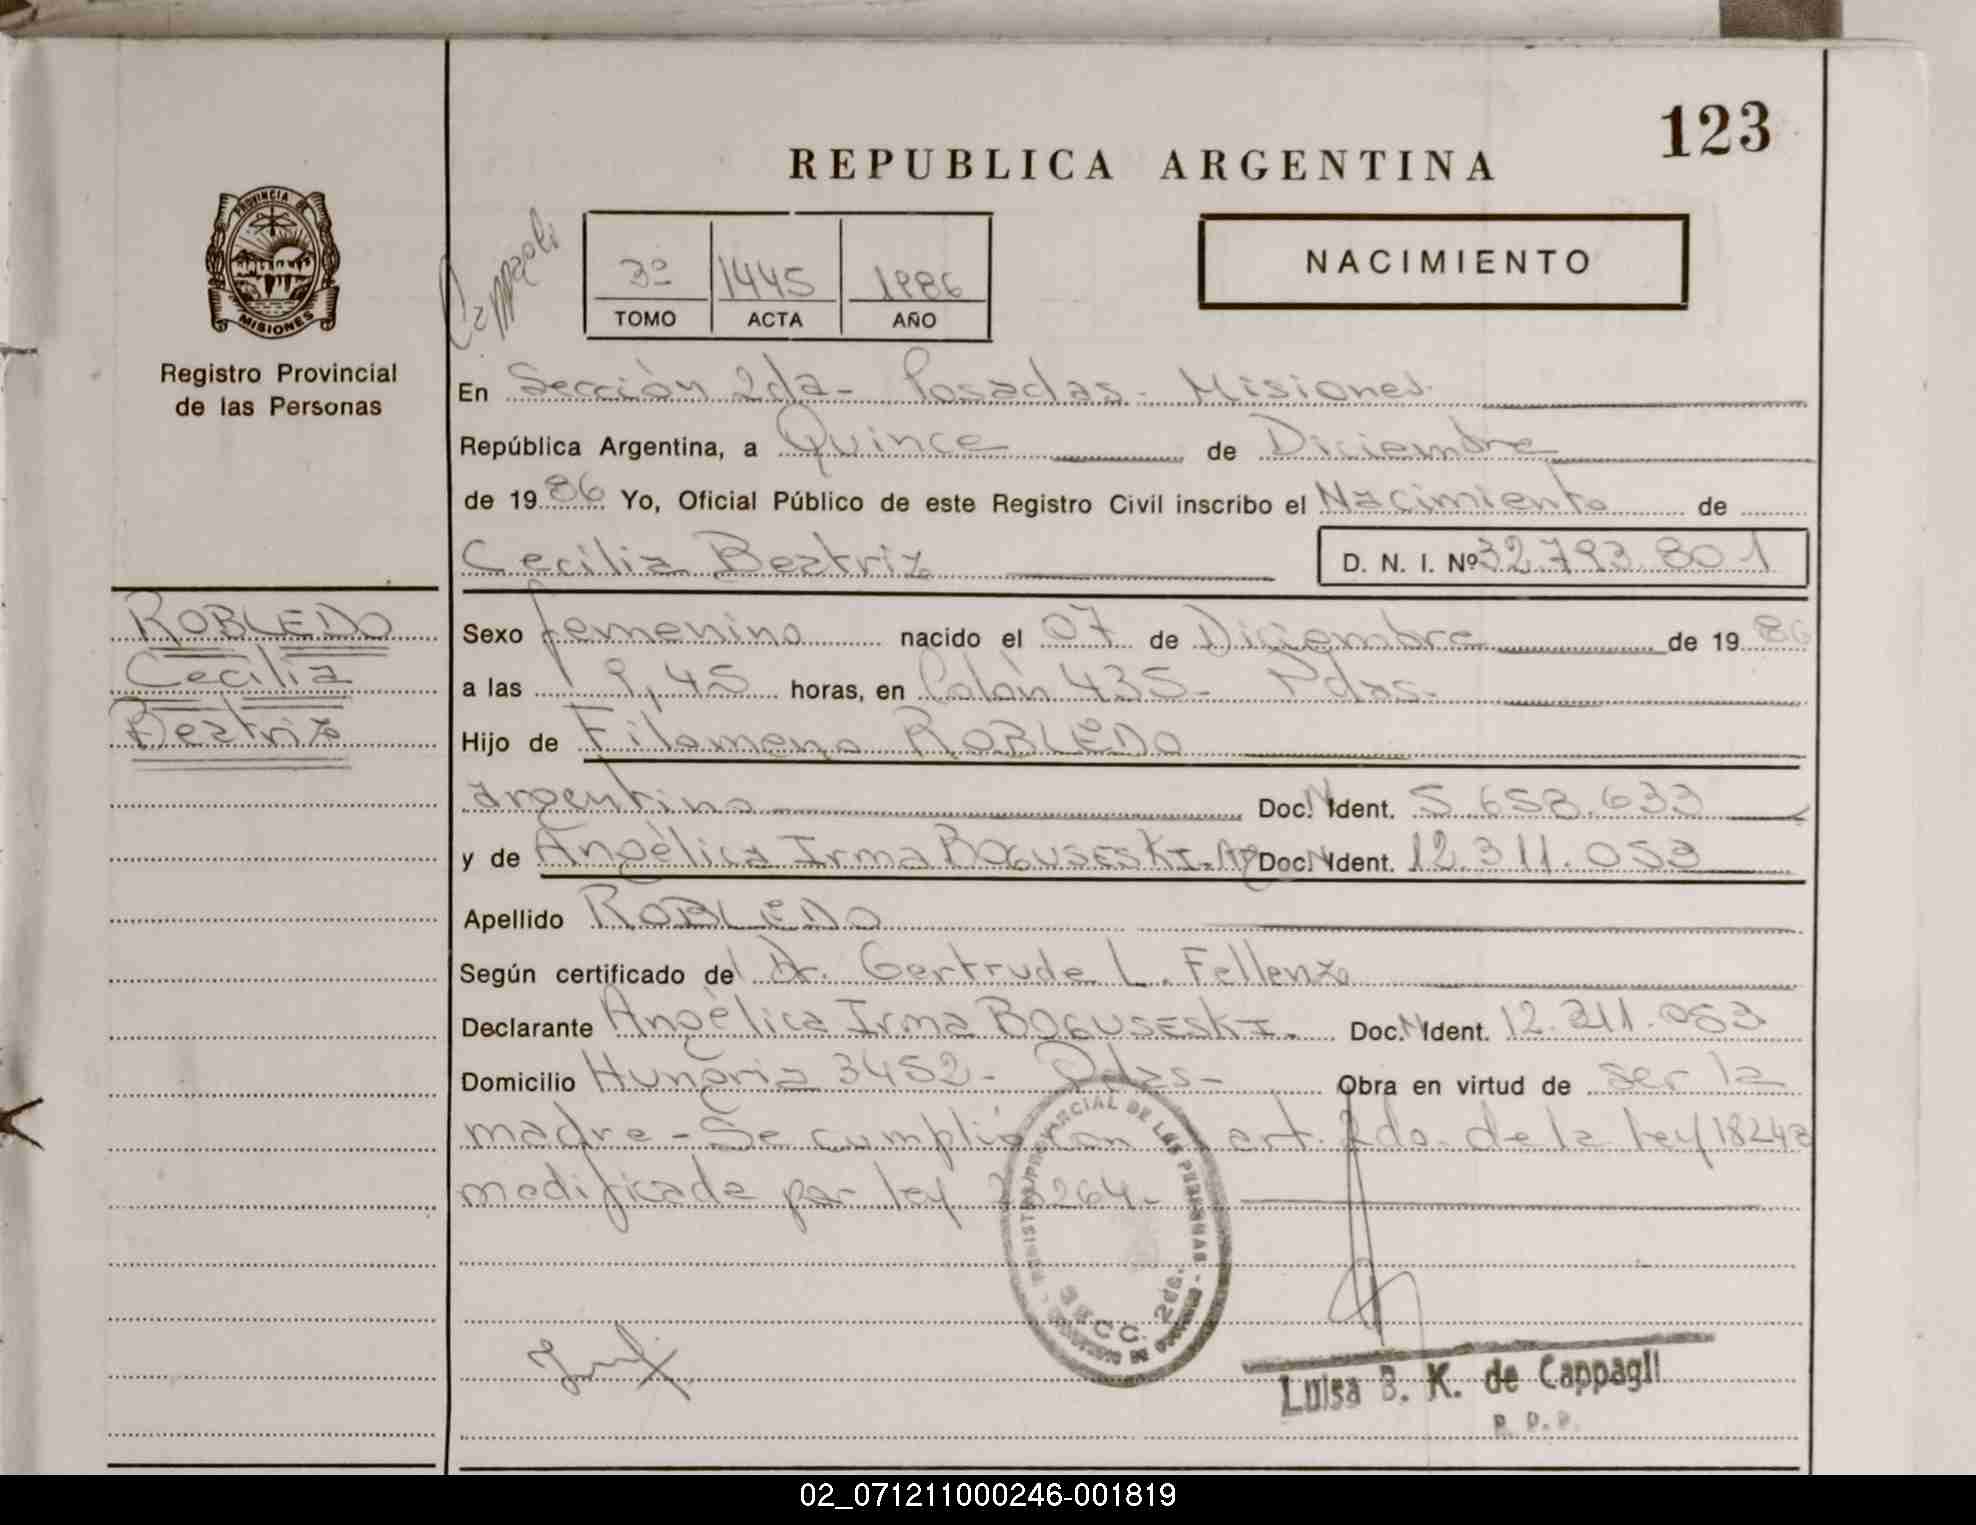 123
REPUBLICA ARGENTINA
PROVINCIA DE
MISIONES
Registro Provincial
de las Personas
Cappagli
3º 1445 1986
TOMO ACTA AÑO
NACIMIENTO
En Sección 2da- Posadas- Misiones
República Argentina, a Quince de Diciembre
de 1986 Yo, Oficial Público de este Registro Civil inscribo el Nacimiento de
Cecilia Beatriz D. N. I. Nº 32.793.801
ROBLEDO
Cecilia
Beatriz
Sexo femenino nacido el 07 de Diciembre de 1986
a las 9,45 horas, en Colón 435- Pdas-
Hijo de Filomeno ROBLEDO
argentino Doc. N Ident. 5.658.633
y de Angélica Irma BOGUSESKI. Arg Doc. N Ident. 12.311.053
Apellido ROBLEDO
Según certificado del Dr. Gertrude L. Fellenz
Declarante Angélica Irma BOGUSESKI. Doc. N Ident. 12.311.053
Domicilio Hungría 3452- Pdas- Obra en virtud de ser la
madre - Se cumplió con art. 2do. de la ley 18248
modificada por ley 23264-
REGISTRO PROVINCIAL DE LAS PERSONAS
SECC. 2da.
Luisa B. K. de Cappagli
R. P. P.
02_071211000246-001819